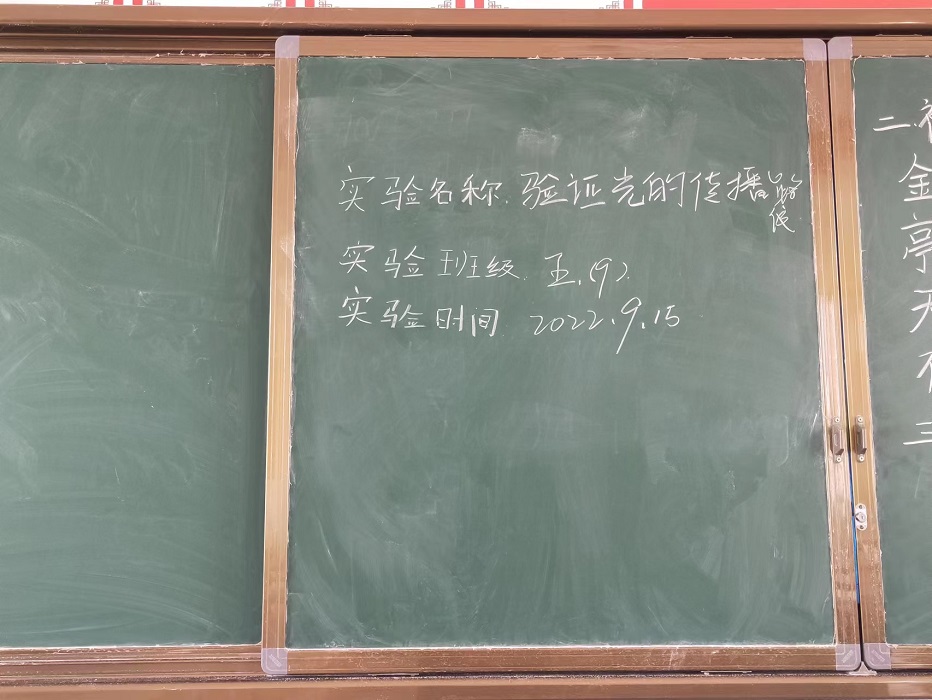 实验名称.验证光的传播路
线
实验班级.五.(9).
实验时间 2022.9.15
二.
金
亭
三